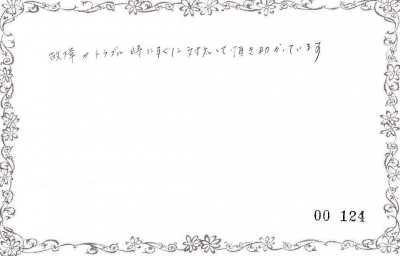 故障やトラブル時にすぐに対応して頂き助かっています
00 124